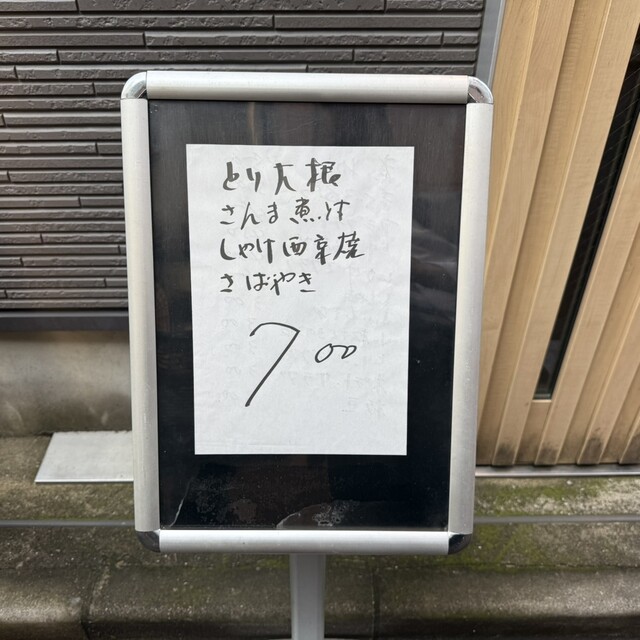 とり大根
さんま煮つけ
しゃけ西京焼
さばやき
700